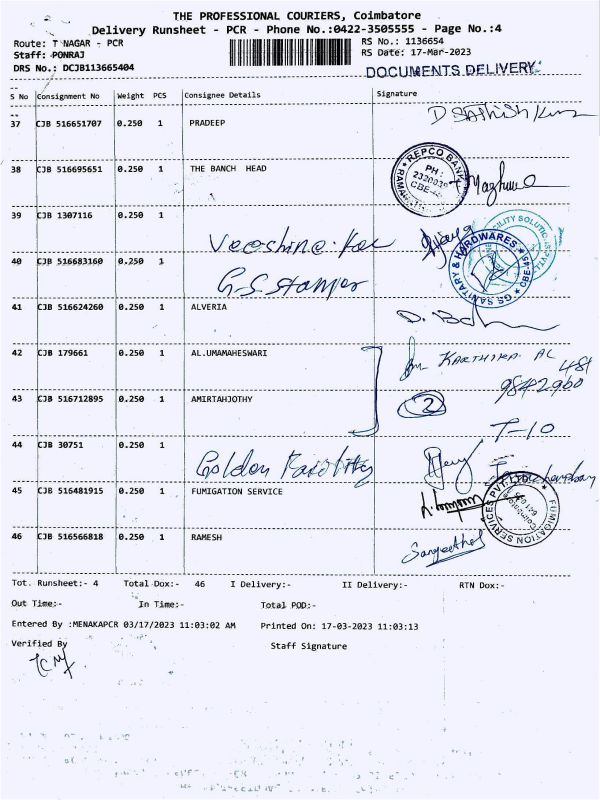 THE PROFESSIONAL COURIERS, Coimbatore
Delivery Runsheet - PCR - Phone No.:0422-3505555 - Page No.:4
Route: T NAGAR - PCR
RS No.: 1136654
Staff: PONRAJ
RS Date: 17-Mar-2023
DRS No.: DCJB113665404
DOCUMENTS DELIVERY
S No Consignment No Weight PCS Consignee Details Signature
37 CJB 516651707 0.250 1 PRADEEP
38 CJB 516695651 0.250 1 THE BANCH HEAD
REPCO BANK
PH:
CBE
39 CJB 1307116 0.250 1
40 CJB 516683160 0.250 1
G.S. Stamper
GS SANITARY & HARDWARES
CBE-45
41 CJB 516624260 0.250 1 ALVERIA
42 CJB 179661 0.250 1 AL.UMAMAHESWARI
KARTHIKA AL
43 CJB 516712895 0.250 1 AMIRTAHJOTHY
2
T-10
44 CJB 30751 0.250 1
Golden
45 CJB 516481915 0.250 1 FUMIGATION SERVICE
FUMIGATION SERVICES PVT.
46 CJB 516566818 0.250 1 RAMESH
Tot. Runsheet:- 4 Total Dox:- 46 I Delivery:- II Delivery:- RTN Dox:-
Out Time:- In Time:- Total POD:-
Entered By :MENAKAPCR 03/17/2023 11:03:02 AM Printed On: 17-03-2023 11:03:13
Verified By Staff Signature